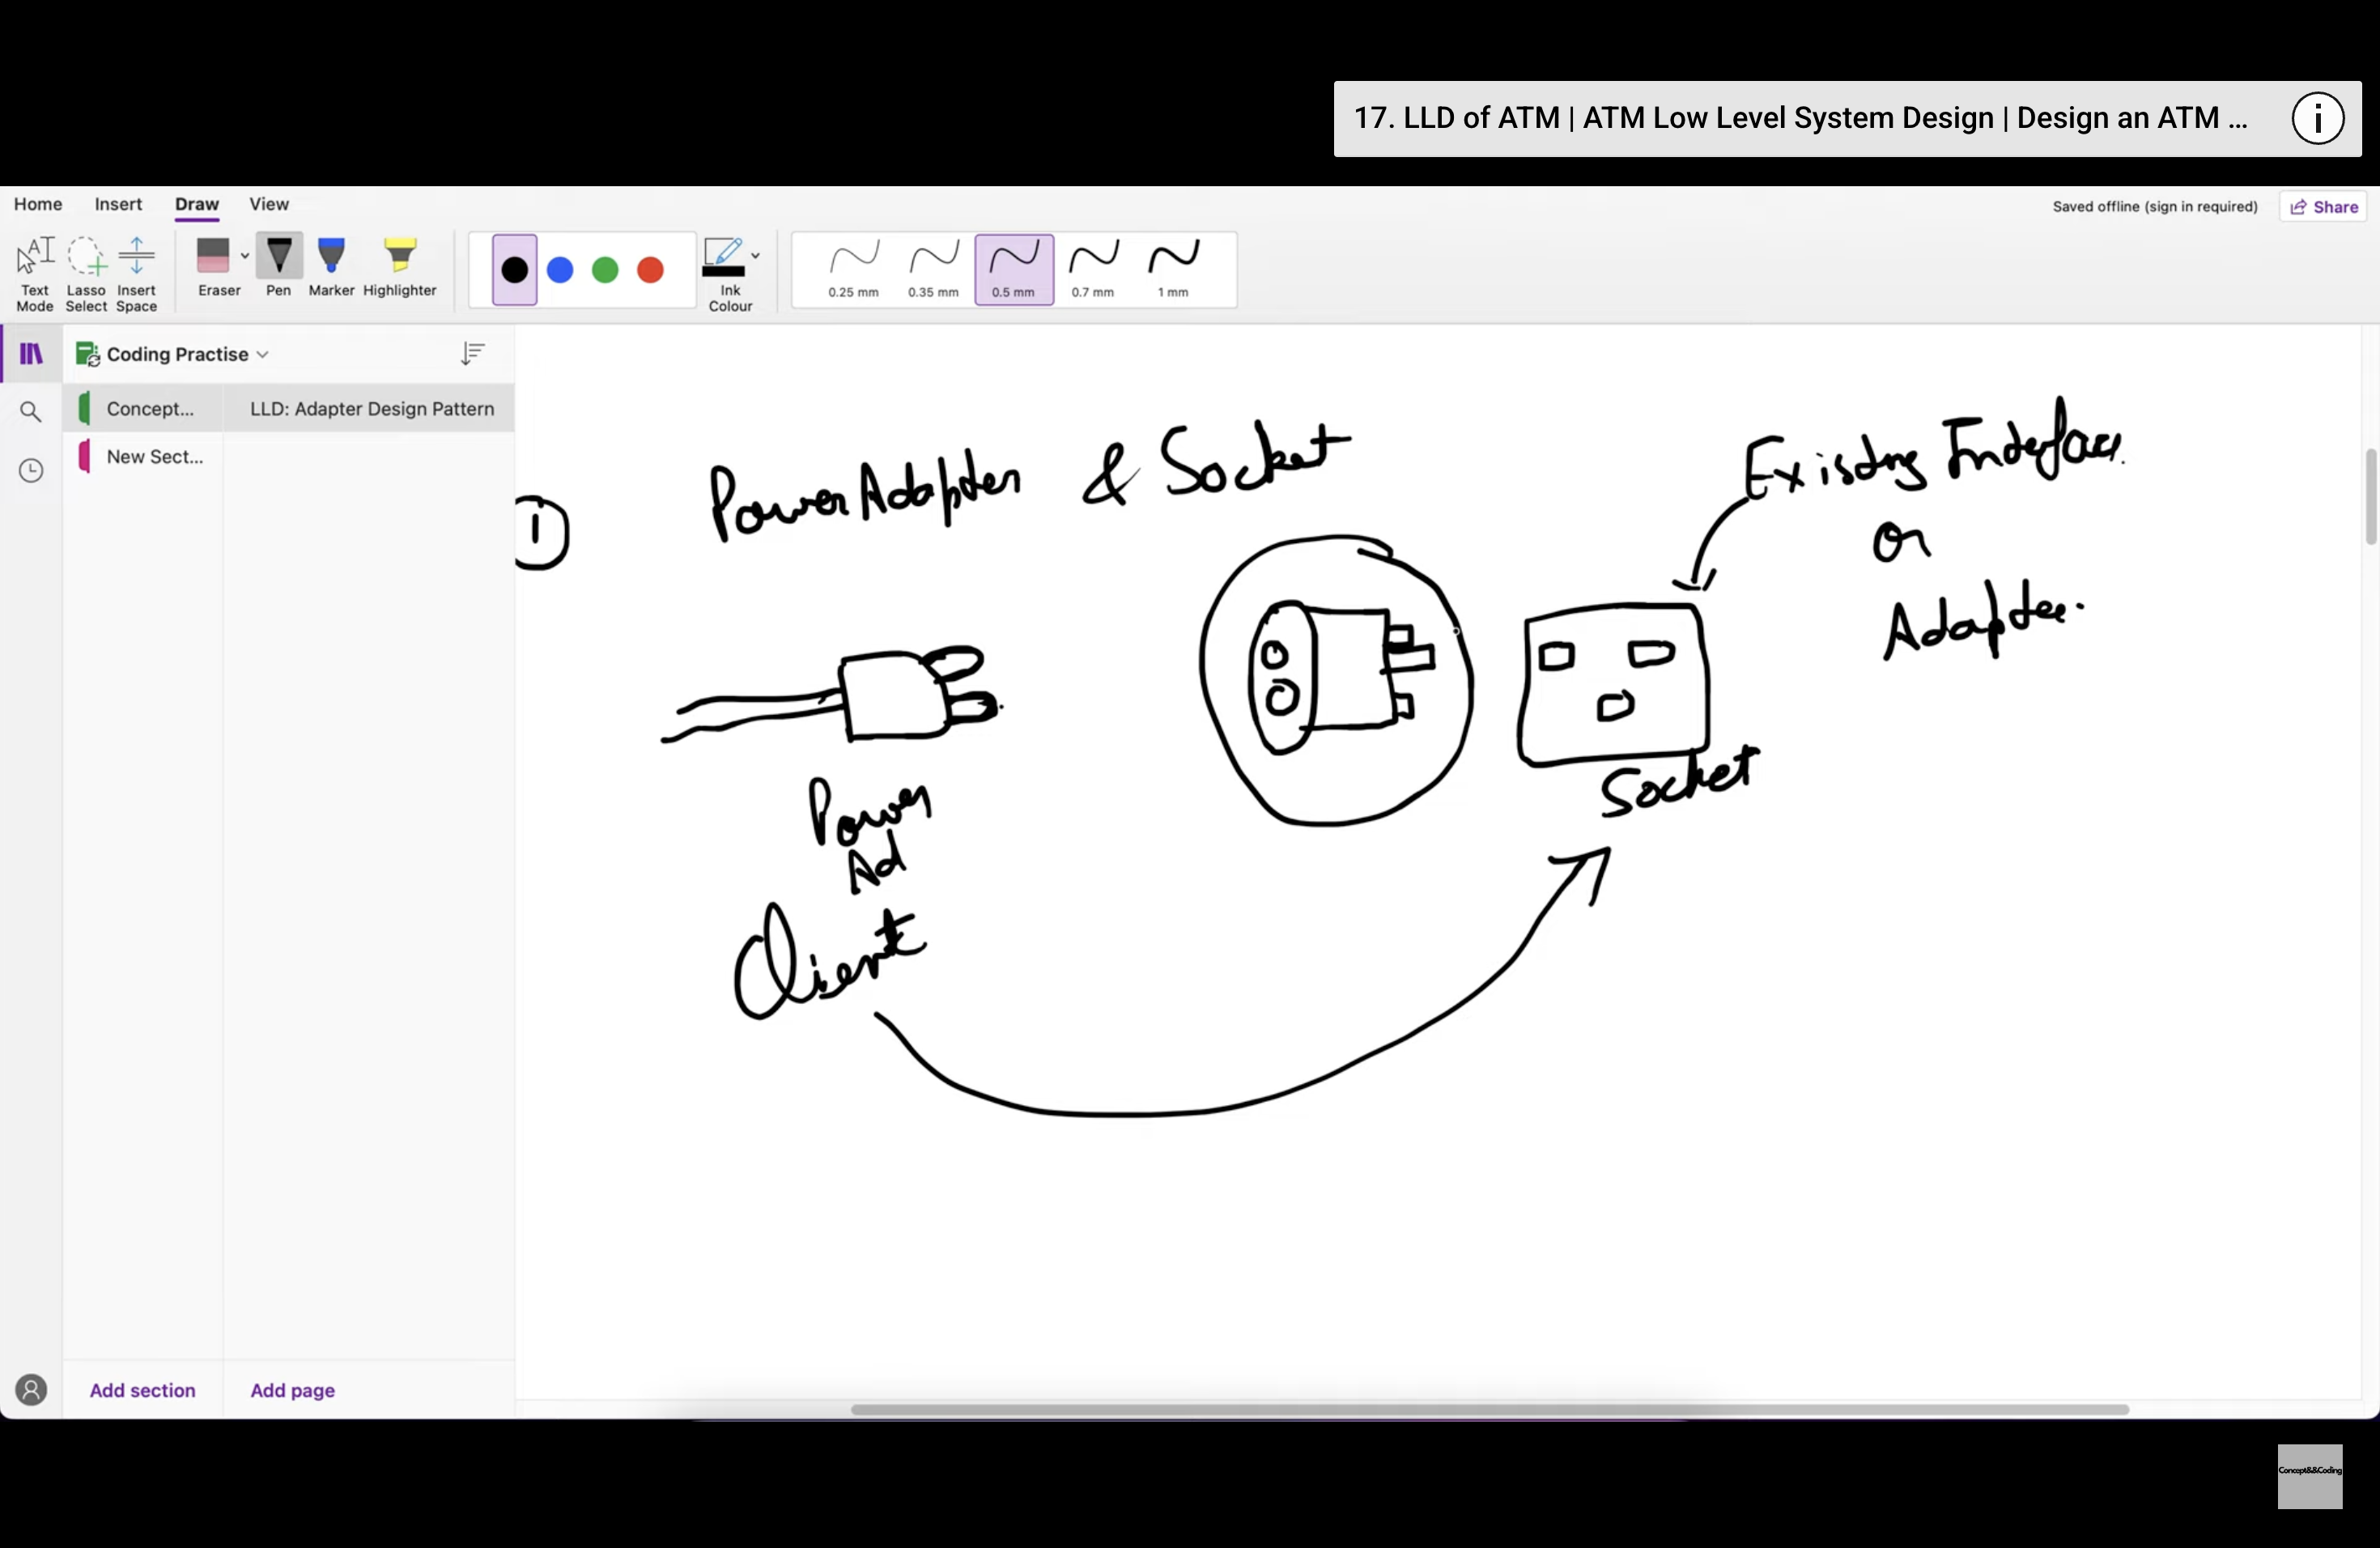 17. LLD of ATM | ATM Low Level System Design | Design an ATM ...
Home Insert Draw View
Saved offline (sign in required) Share
Text Mode
Lasso Select
Insert Space
Eraser
Pen
Marker
Highlighter
Ink Colour
0.25 mm
0.35 mm
0.5 mm
0.7 mm
1 mm
Coding Practise
Concept...
LLD: Adapter Design Pattern
New Sect...
1
Power Adapter & Socket
Existing Interface
or
Adaptee.
Socket
Power
Ad
Client
Add section
Add page
Concept&&Coding